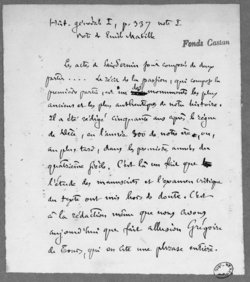 Hist. générale I, p. 337 note I.
note de Emile Mabille
Fonds Castan
Les actes de se composent de deux
parties.... Le récit de la passion, qui compose la
première partie, est un des monuments les plus
anciens et les plus authentiques de notre histoire.
Il a été rédigé cinquante ans après le règne
de Dèce, en l'année 300 de notre ère, ou,
au plus tard, dans les premières années du
quatrième siècle. C'est là un fait que
l'étude des manuscrits et l'examen critique
du texte ont mis hors de doute. C'est
à la rédaction même que nous avons
aujourd'hui que fait allusion Grégoire
de Tours, qui en cite une phrase entière.